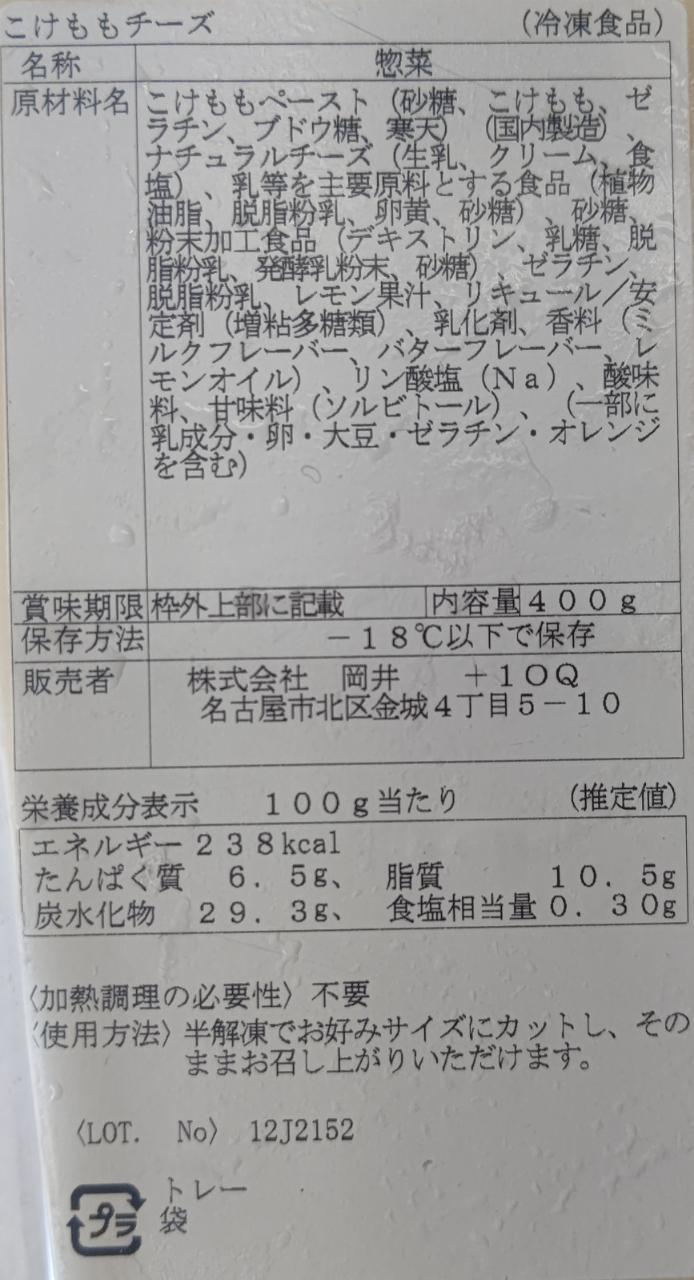 こけももチーズ （冷凍食品）
名称 惣菜
原材料名 こけももペースト（砂糖、こけもも、ゼ
ラチン、ブドウ糖、寒天）（国内製造）、
ナチュラルチーズ（生乳、クリーム、食
塩）、乳等を主要原料とする食品（植物
油脂、脱脂粉乳、卵黄、砂糖）、砂糖、
粉末加工食品（デキストリン、乳糖、脱
脂粉乳、発酵乳粉末、砂糖）、ゼラチン、
脱脂粉乳、レモン果汁、リキュール／安
定剤（増粘多糖類）、乳化剤、香料（ミ
ルクフレーバー、バターフレーバー、レ
モンオイル）、リン酸塩（Ｎａ）、酸味
料、甘味料（ソルビトール）、（一部に
乳成分・卵・大豆・ゼラチン・オレンジ
を含む）
賞味期限 枠外上部に記載 内容量 ４００ｇ
保存方法 －１８℃以下で保存
販売者 株式会社 岡井 ＋１０Ｑ
名古屋市北区金城４丁目５－１０
栄養成分表示 １００ｇ当たり （推定値）
エネルギー ２３８kcal
たんぱく質 ６．５g、 脂質 １０．５g
炭水化物 ２９．３g、 食塩相当量 ０．３０g
〈加熱調理の必要性〉不要
〈使用方法〉半解凍でお好みサイズにカットし、その
ままお召し上がりいただけます。
〈LOT. No〉 12J2152
プラ トレー
袋